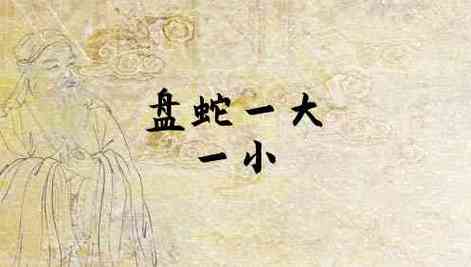 盘蛇一大
一小